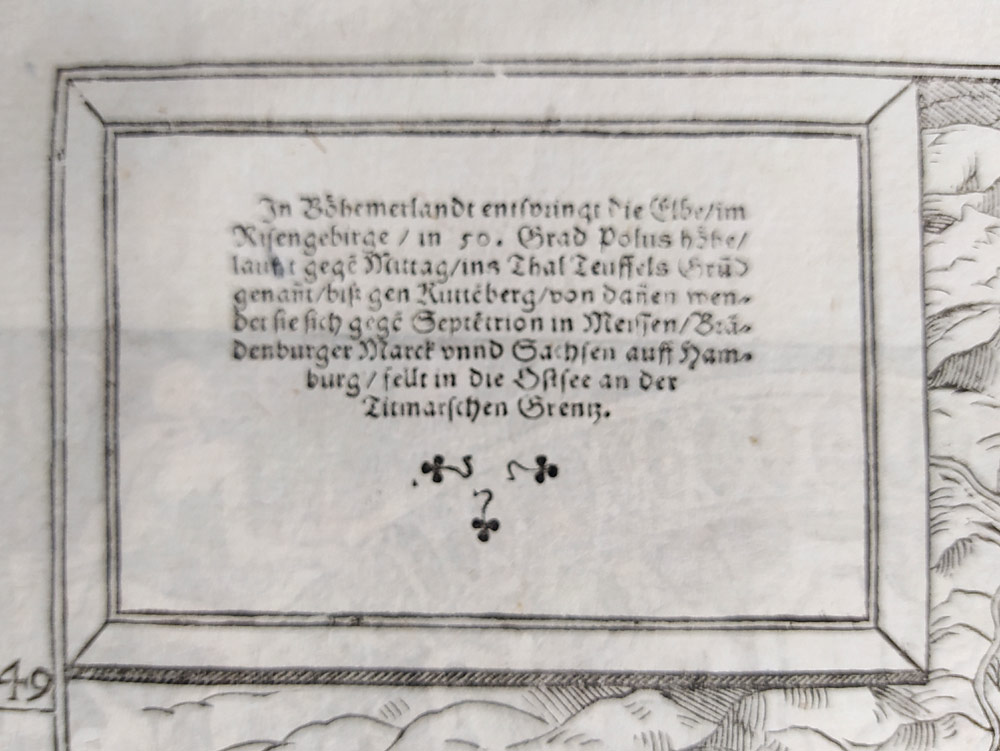 In Böhemerlandt entspringt die Elbe/im
Risengebirge / in 50. Grad Polus höhe/
laufft gegē Mittag/ins Thal Teuffels Grūd
genañt/biß gen Kuttēberg/von dañen wen⸗
det sie sich gegē Septētrion in Meissen/Brā⸗
denburger Marck vnnd Sachsen auff Ham⸗
burg/fellt in die Ostsee an der
Titmarschen Grentz.
49